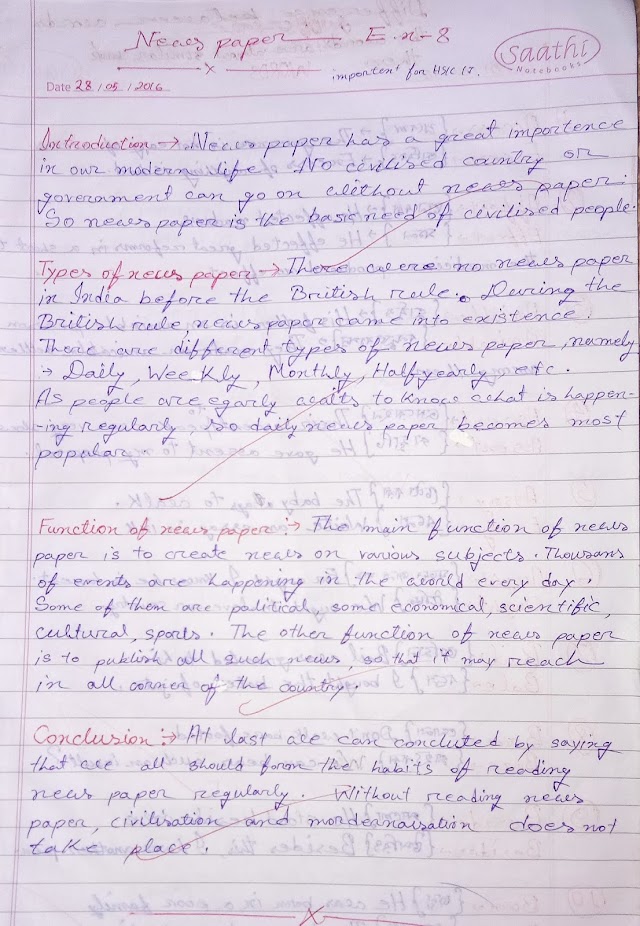 News paper — E.x-8
saathi
Notebooks
x
importent for HSLC IT.
Date 28/05/2016
Introduction → News paper has a great importence
in our modern life. No civilised country or
government can go on without news paper.
So news paper is the basic need of civilised people.
Types of news paper → There were no news paper
in India before the British rule. During the
British rule, news paper came into existence.
There are different types of news paper, namely
→ Daily, Weekly, Monthly, Half yearly etc.
As people are egarly waits to know what is happen-
-ing regularly so daily news paper becomes most
popular.
Function of news paper :→ The main function of news
paper is to create news on various subjects. Thousans
of events are happening in the world every day.
Some of them are political, some economical, scientific,
cultural, sports. The other function of news paper
is to publish all such news, so that it may reach
in all corner of the country.
Conclusion :→ At last we can concluted by saying
that we all should form the habits of reading
news paper regularly. Without reading news
paper, civilisation and mordernaisation does not
take place.
x